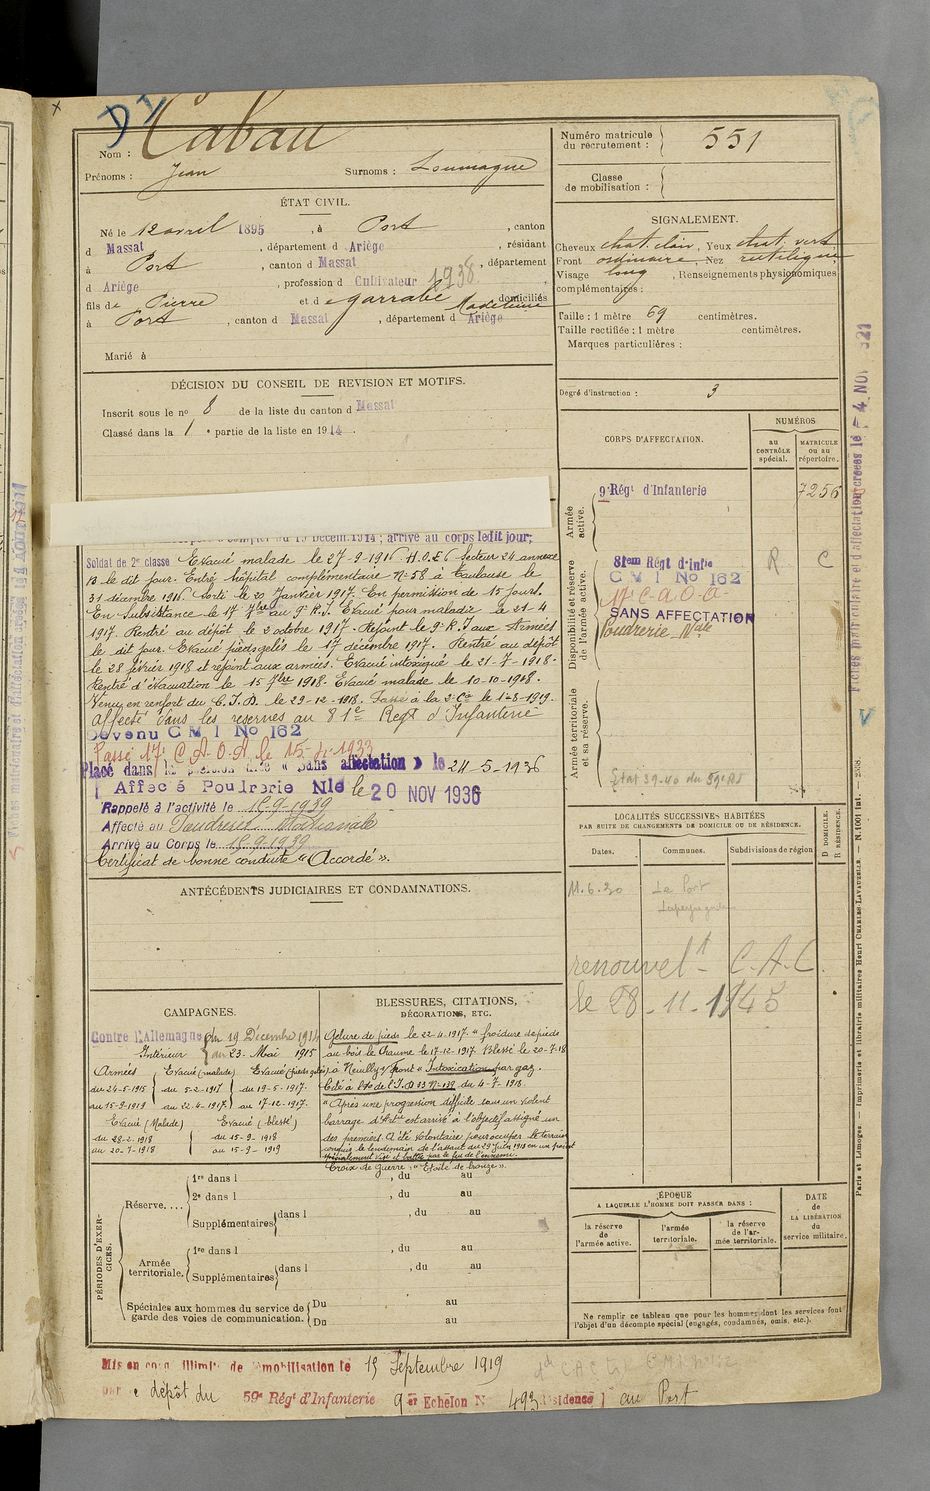 D V
Nom : Cabau
Prénoms : Jean Surnoms : Loumagne
Numéro matricule du recrutement : 551
Classe de mobilisation :
ÉTAT CIVIL.
Né le 12 avril 1895, à Port, canton
d Massat, département d Ariège, résidant
à Port, canton d Massat, département
d Ariège, profession d Cultivateur 1938
fils de Pierre et de garrabé Madeleine domiciliés
à Port, canton d Massat, département d Ariège
Marié à
SIGNALEMENT.
Cheveux chat. clair, Yeux chat. vert
Front ordinaire, Nez rectiligne
Visage long, Renseignements physionomiques
complémentaires :
Taille : 1 mètre 69 centimètres.
Taille rectifiée : 1 mètre centimètres.
Marques particulières :
Degré d'instruction : 3
DÉCISION DU CONSEIL DE REVISION ET MOTIFS.
Inscrit sous le no 8 de la liste du canton d Massat
Classé dans la 1e partie de la liste en 1914.
CORPS D'AFFECTATION.
NUMÉROS
au CONTRÔLE spécial.
MATRICULE ou au répertoire.
Armée active.
9e Régt d'Infanterie 7256
Disponibilité et réserve de l'armée active.
81em Régt d'Infie R C
C M I No 162
17e C.A.O.A.
SANS AFFECTATION
Poudrerie Nale
Armée territoriale et sa réserve.
Etat 39-40 du 59e RI
du 19 Décem. 1914; arrivé au corps ledit jour;
Soldat de 2e classe Evacué malade le 27-9-1916 H.O.E6 Secteur 24 annexe
B le dit jour. Entré hôpital complémentaire No 58 à Toulouse le
31 décembre 1916. Sorti le 20 Janvier 1917. En permission de 15 jours.
En Subsistance le 17 7bre au 9e R.I. Evacué pour maladie le 21-4
1917. Rentré au dépôt le 2 octobre 1917. Rejoint le 9e R.I aux Armées
le dit jour. Evacué pieds gelés le 17 décembre 1917. Rentré au dépôt
le 28 février 1918 et rejoint aux armées. Evacué intoxiqué le 21-7-1918.
Rentré d'évacuation le 15 7bre 1918. Evacué malade le 10-10-1918.
Venu en renfort du C.I.D. le 29-12-1918. Passé à la 2e Cie le 1-8-1919.
Affecté dans les reserves au 81e Regt d'Infanterie
Devenu C M I No 162
Passé 17e C A O A le 15-4-1933
Placé dans la position dite « Sans affectation » le 24-5-1936
Affecé Poudrerie Nle le 20 NOV 1936
Rappelé à l'activité le 15-9-1939
Affecté au Poudrerie Nationale
Arrivé au Corps le 15-9-1939
Certificat de bonne conduite « Accordé ».
ANTÉCÉDENTS JUDICIAIRES ET CONDAMNATIONS.
LOCALITÉS SUCCESSIVES HABITÉES
PAR SUITE DE CHANGEMENTS DE DOMICILE OU DE RÉSIDENCE.
Dates. Communes. Subdivisions de région
D DOMICILE. R RÉSIDENCE.
11.6.20 Le Port
renouvelt C.A.C.
le 28-11-1945
CAMPAGNES.
Contre l'Allemagne du 19 Décembre 1914
Intérieur au 23 Mai 1915
Armées Evacué (malade) Evacué (pieds gelés)
du 24-5-1915 du 5-2-1917 du 19-5-1917
au 15-9-1919 au 22-4-1917 au 17-12-1917.
Evacué (Malade) Evacué (blessé)
du 28-2-1918 du 15-9-1918
au 20-7-1918 au 15-9-1919
BLESSURES, CITATIONS,
DÉCORATIONS, ETC.
Gelure de pieds le 22-4-1917. « froidure de pieds
au bois le Chaume le 17-12-1917. Blessé le 20-7-18
à Neuilly St Front « Intoxication par gaz
Cité à l'o de l'I.D 13 No 139 du 4-7-1918.
"Après une progression difficile sous un violent
barrage d'Artie est arrivé à l'objectif assigné un
des premiers. A été volontaire pour occuper le terrain
conquis le lendemain de l'assaut du 29 juin 1918 en un point
spécialement visé et battu par le feu de l'ennemi.
Croix de Guerre : "Etoile de bronze".
PÉRIODES D'EXERCICES.
Réserve....
1re dans l , du au
2e dans l , du au
Supplémentaires dans l , du au
Armée territoriale.
1re dans l , du au
Supplémentaires dans l , du au
Spéciales aux hommes du service de garde des voies de communication.
Du au
Du au
ÉPOQUE
A LAQUELLE L'HOMME DOIT PASSER DANS :
la réserve de l'armée active.
l'armée territoriale.
la réserve de l'armée territoriale.
DATE de LA LIBÉRATION du service militaire.
Ne remplir ce tableau que pour les hommes dont les services font
l'objet d'un décompte spécial (engagés, condamnés, omis, etc.).
Mis en congé illimité de démobilisation le 15 Septembre 1919
par le dépôt du 59e Régt d'Infanterie 9er Echelon N 493 Résidence au Port
Paris et Limoges. — Imprimerie et librairie militaires Henri CHARLES-LAVAUZELLE. — N. 1001 Int. — 2538.
Fiches matriculaire et d'affectation créées le 4 NOV 1921
V